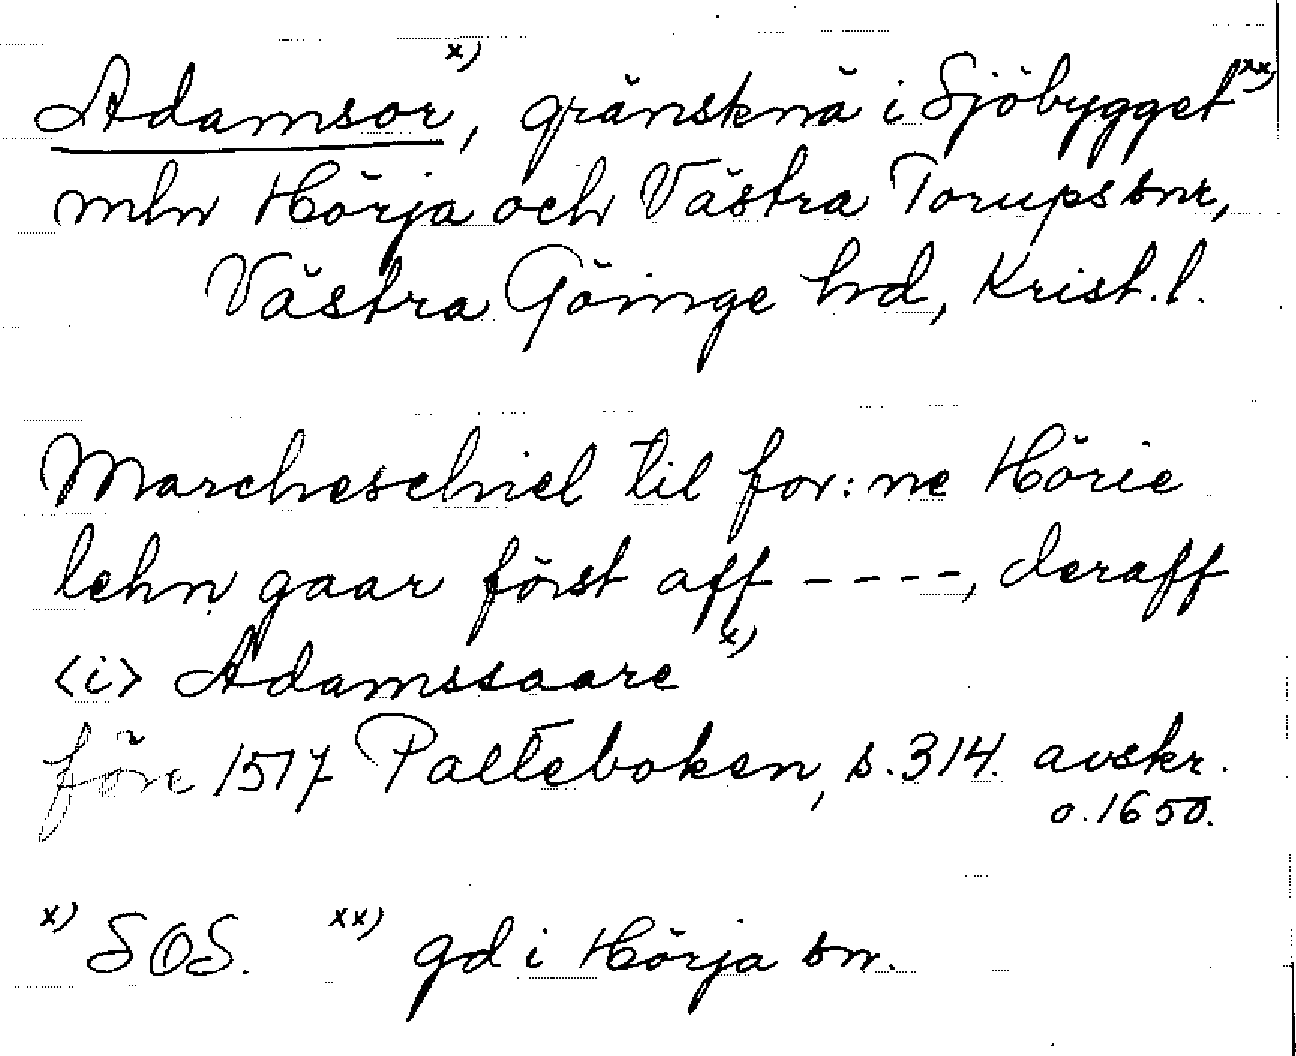 Adamsor x), gränsknä i Sjöbygget xx)
mln Hörja och Västra Torups snr,
Västra Göinge hd, Krist. l.
Marcheschiel til for:ne Hörie
lehn gaar först aff ----, deraff
<i> Adamssaare x)
före 1517 Palteboken, s. 314. avskr.
o. 1650.
x) SOS. xx) gd i Hörja sn.